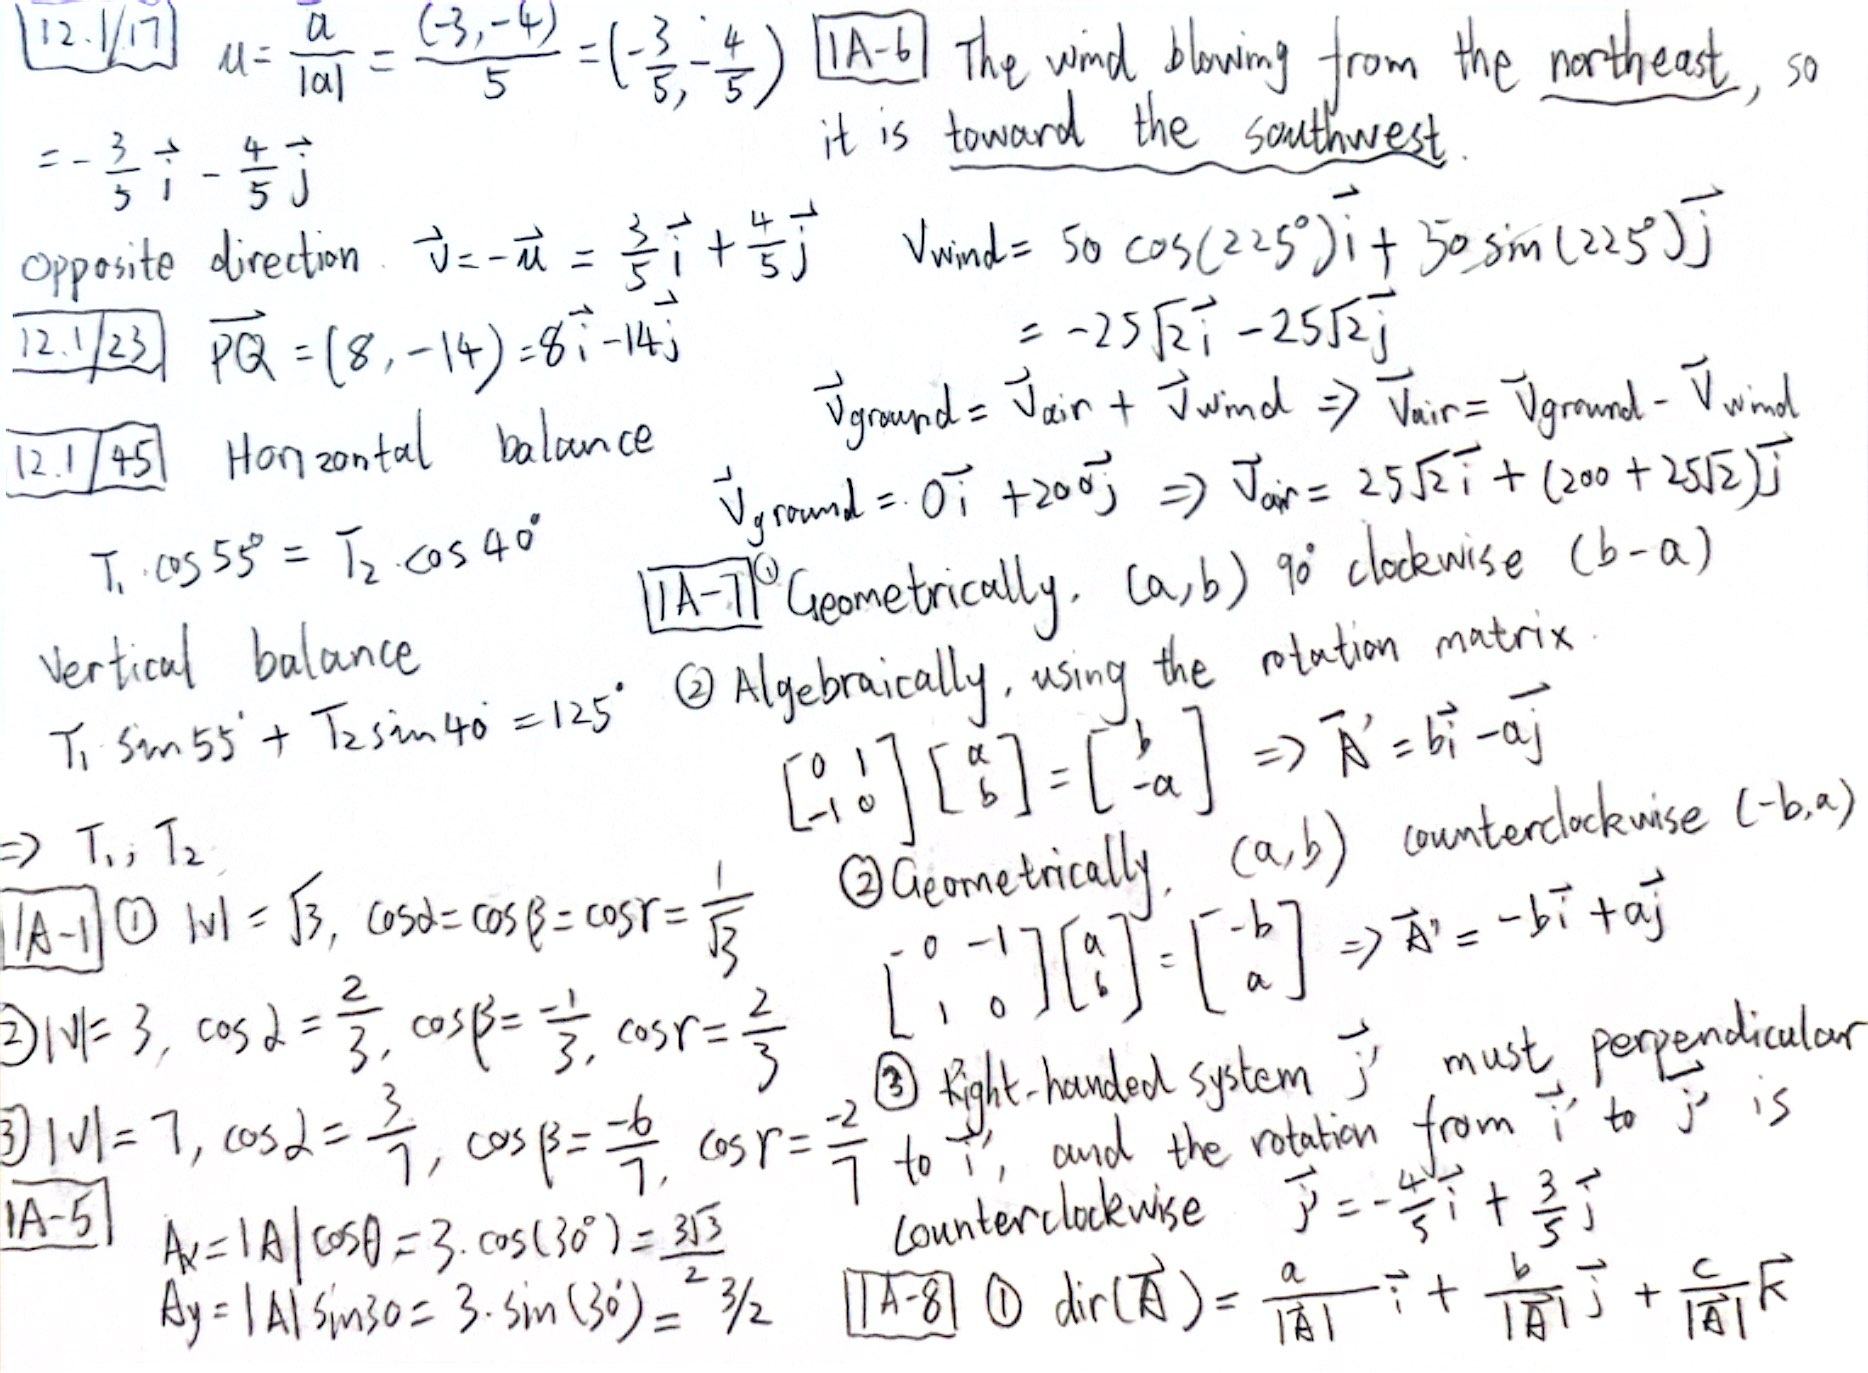 12.1/17 u = a/|a| = (-3,-4)/5 = (-3/5, -4/5)
= -3/5 i⃗ - 4/5 j⃗
opposite direction. v⃗ = -u⃗ = 3/5 i⃗ + 4/5 j⃗
12.1/23 PQ⃗ = (8, -14) = 8i⃗ - 14j⃗
12.1/45 Horizontal balance
T₁·cos55° = T₂·cos40°
Vertical balance
T₁ sin55° + T₂sin40° = 125°
=> T₁, T₂
1A-1 ① |v| = √3, cosα = cosβ = cosr = 1/√3
② |v| = 3, cosα = 2/3, cosβ = -1/3, cosr = 2/3
③ |v| = 7, cosα = 3/7, cosβ = -6/7, cosr = -2/7
1A-5
Ax = |A|cosθ = 3·cos(30°) = 3√3/2
Ay = |A|sin30 = 3·sin(30°) = 3/2
1A-6 The wind blowing from the northeast, so
it is toward the southwest.
Vwind = 50 cos(225°)i⃗ + 50 sin(225°)j⃗
= -25√2 i⃗ - 25√2 j⃗
V⃗ground = V⃗air + V⃗wind => V⃗air = V⃗ground - V⃗wind
V⃗ground = 0i⃗ + 200j⃗ => V⃗air = 25√2 i⃗ + (200 + 25√2)j⃗
1A-7 ① Geometrically, (a,b) 90° clockwise (b-a)
② Algebraically, using the rotation matrix.
[0 1; -1 0] [a; b] = [b; -a] => A⃗' = bi⃗ - aj⃗
② Geometrically, (a,b) counterclockwise (-b,a)
[0 -1; 1 0] [a; b] = [-b; a] => A⃗' = -bi⃗ + aj⃗
③ Right-handed system j⃗' must perpendicular
to i⃗', and the rotation from i⃗' to j⃗' is
counterclockwise j⃗' = -4/5 i⃗ + 3/5 j⃗
1A-8 ① dir(A⃗) = a/|A⃗| i⃗ + b/|A⃗| j⃗ + c/|A⃗| k⃗